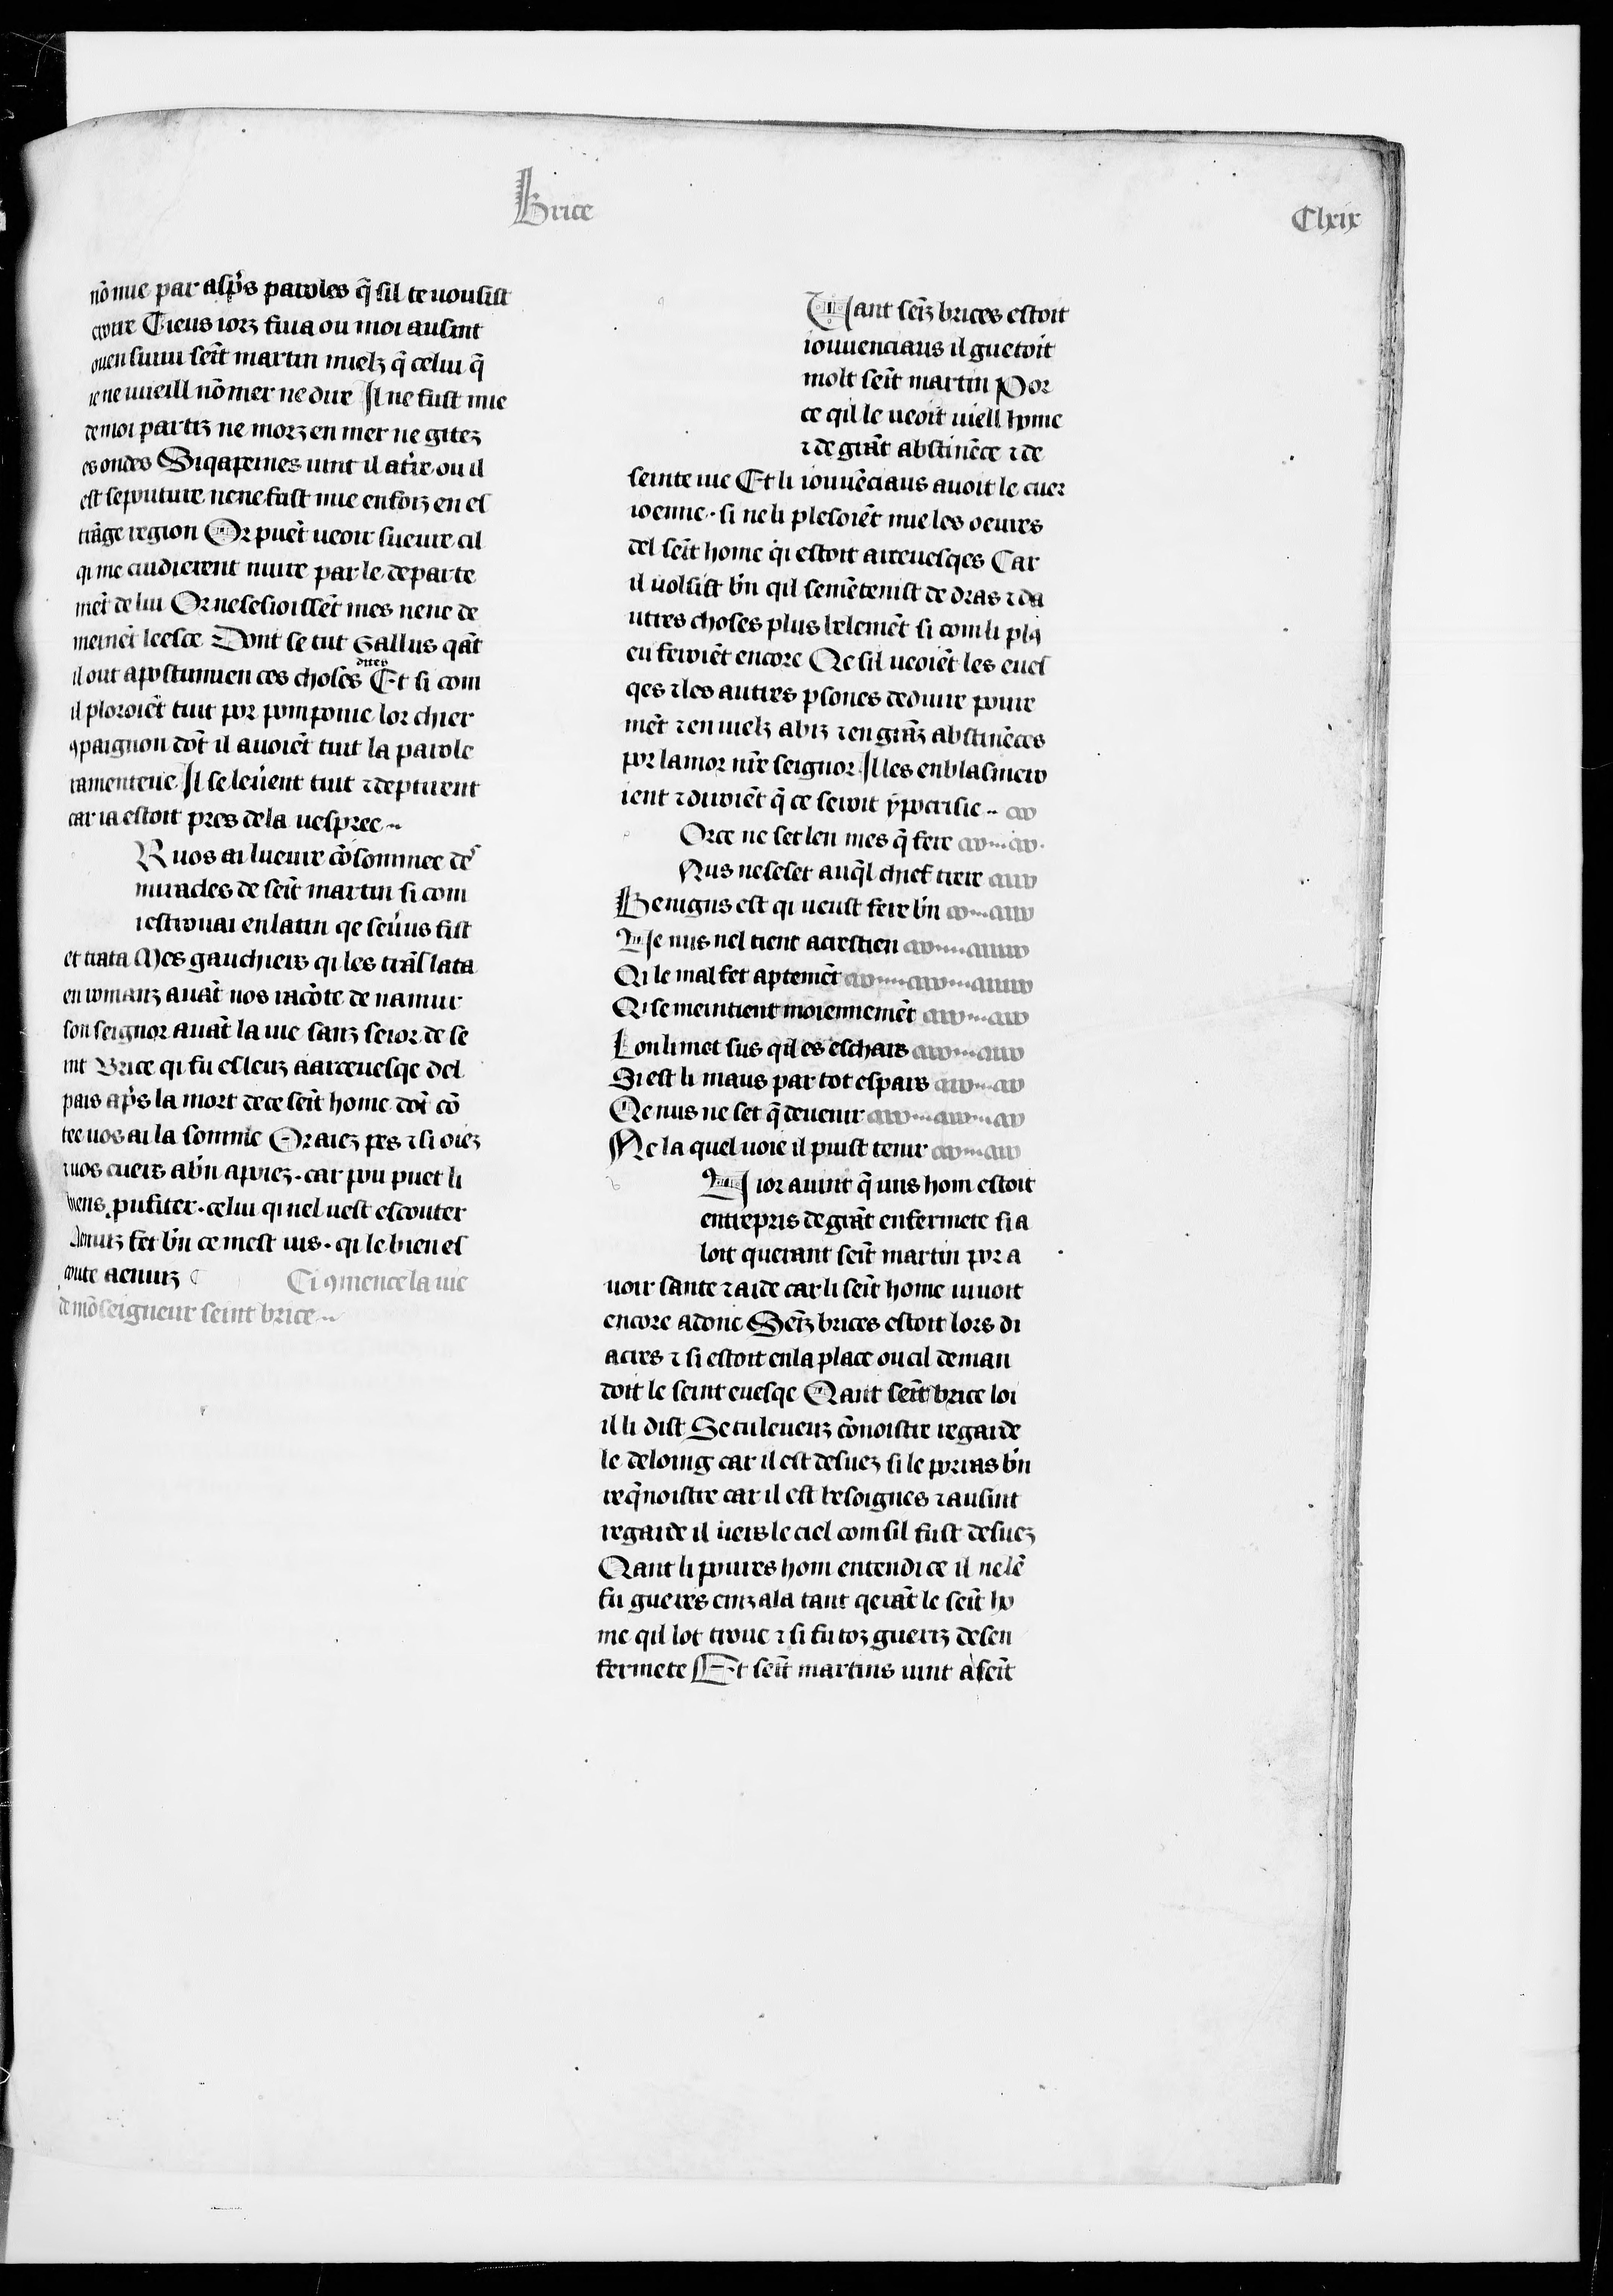 Brice
Clxix
nō mie par asp̄s paroles q̄ sil te uousist
croire Cieus iorz fina ou moi ausint
ouensuiui seīt martin mielz q̄ celui q̄
ie ne uueill nōmer ne dire Il ne fust mie
de moi partiz ne morz en mer ne gitez
es ondes Siqapeines uint il at̄re ou il
est sepouture nene fust mie enfoiz en es
trāge region Or puēt ueoir sueuire cil
qi me cuidierent nuire par le departe
mēt de lui Or nesesioissēt mes nene de
meinēt leesce Dont se tut Gallus qāt
dites
il out apostumien ces choses Et si com
il ploroiēt tuit por pomponie lor chier
ꝯpaignon dōt il auoiēt tuit la parole
ramenteue Il se leūent tuit ⁊ deptirent
car ia estoit pres dela uespree
R uos ai lueuire cōsommee des
miracles de seīt martin si com
iestrouai enlatin qe seūus fist
et trata Mes gauchiers qi les trāslata
en romanz auāt uos racōte de namur
son seignor auāt la uie sanz seior de se
int Brice qi fu esleuz aarceuesqe del
pais ap̄s la mort dece seīt home dōt cō
tee uos ai la somme Or aiez pes ⁊ si oiez
⁊ uos cuers ab̄n apoiez . car pou puet li
biens pufiter . celui qi nel uest escouter
Aenuiz fet b̄n ce mest uis . qi le bien es
coute aenuiz Ci ꝯmence la uie
de mōseigneur seint brice
Qant seīz brices estoit
iouuenciaus il guetoit
molt seīt martin Por
ce qil le ueoit uiell home
⁊ de grāt abstinēce ⁊ de
seinte uie Et li iouuēciaus auoit le cuer
ioenne . si ne li plesoiēt mie les oeuures
del seīt home q̇ estoit arceuesqes Car
il uolsist b̄n qil semētenist de dras ⁊ da
utres choses plus belemēt si com li pl9
en feroiēt encore Qe sil ueoiēt les eues
qes ⁊ les autres psones deuiure poure
mēt ⁊ en uielz abiz ⁊ en grāz abstinēces
por lamor nr̄e seignor Il les enblasmero
ient ⁊ diroiēt q̄ ce seroit ypocrisie
Orce ne set len mes q̄ fere
Nus ne seset auq̄l chief trere
Benigns est qi ueust fere b̄n
Qe nus nel tient acrestien
Qi le mal fet aptemēt
Qi se meintient moiennemēt
Lon li met sus qil es eschars
Si est li maus par tot espars
Qe nus ne set q̄ deuenir
Ne la quel uoie il puist tenir
Un ior auint q̄ uns hom estoit
entrepris de grāt enfermete si a
loit querant seīt martin por a
uoir sante ⁊ aide car li seīt home uiuoit
encore adonc Seīz brices estoit lors di
acres ⁊ si estoit enla place ou cil deman
doit le seint euesqe Qant seīt brice loi
il li dist Se tu leueuz cōnoistre regarde
le deloing car il est desuez si le porras b̄n
req̄noistre car il est besoignes ⁊ ausint
regarde il uers le ciel com sil fust desuez
Qant li poures hom entendi ce il ne lē
fu gueres einz ala tant qerāt le seīt ho
me qil lot troue ⁊ si fu toz gueriz desen
fermete Et seīt martins uint a seīt